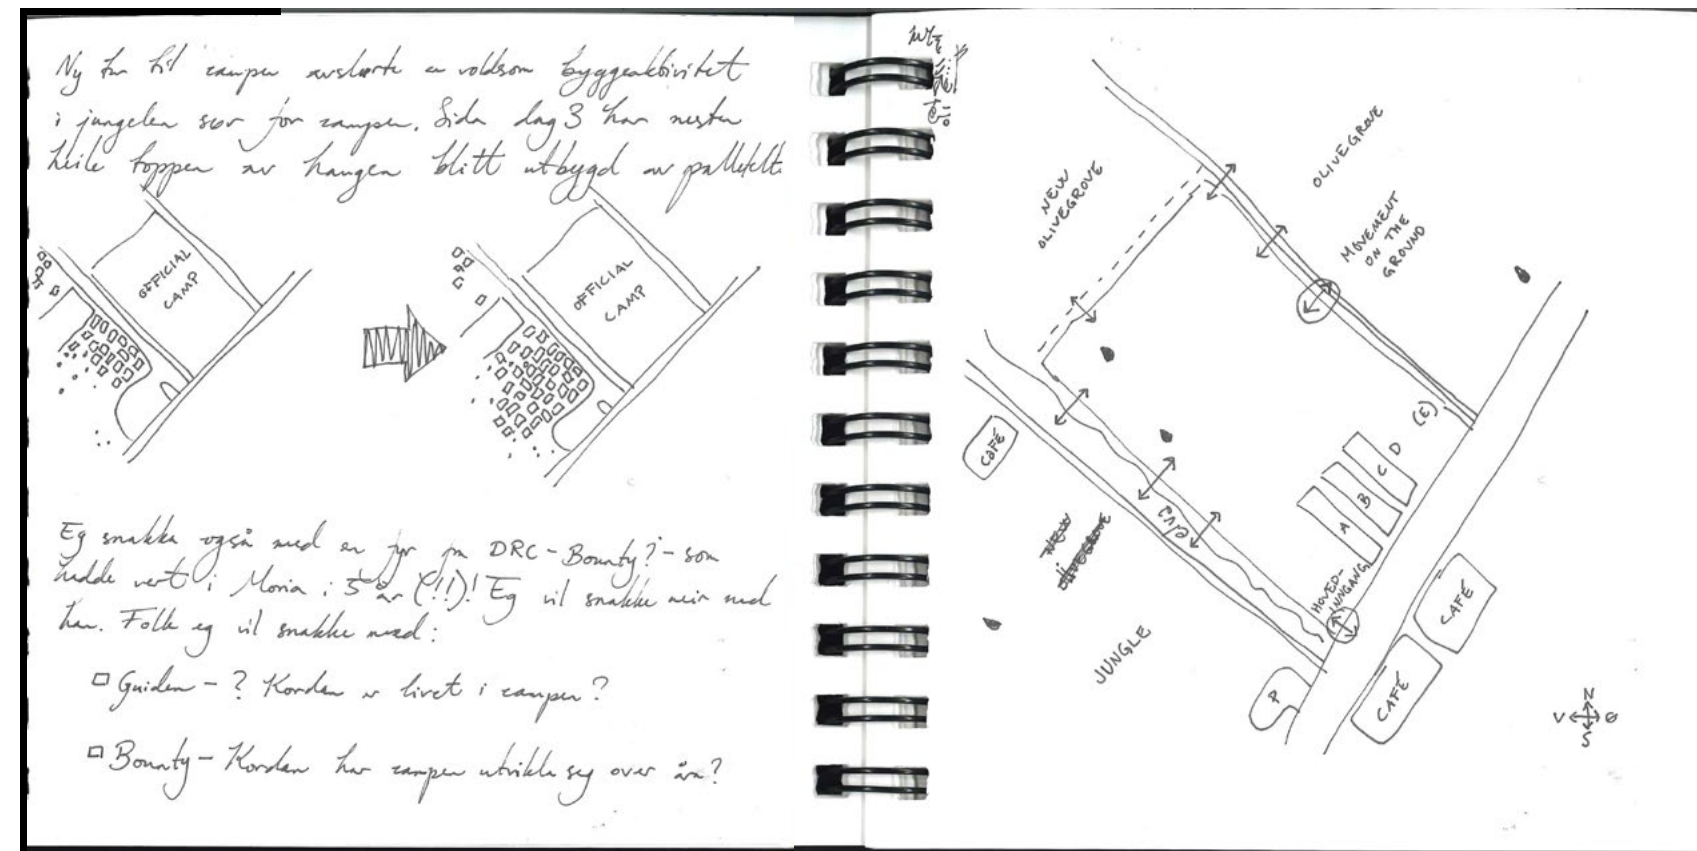 Ny tur til campen avslørte en voldsom byggeaktivitet
i jungelen sør for campen. Sida dag 3 har nesten
heile toppen av haugen blitt utbygd av palletelt.
OFFICIAL
CAMP
OFFICIAL
CAMP
Eg snakka også med en fyr fra DRC - Bounty? - som
hadde vert i Moria i 5 år (!!)! Eg vil snakke meir med
han. Folk eg vil snakke med:
Guiden - ? Kordan er livet i campen?
Bounty - Kordan har campen utvikla seg over åra?
OLIVEGROVE
NEW
OLIVEGROVE
MOVEMENT
ON THE
GROUND
CAFÉ
(E)
D
C
B
A
ELV?
NEW
OLIVEGROVE
HOVED-
INNGANG
CAFÉ
JUNGLE
P
CAFÉ
N
V Ø
S